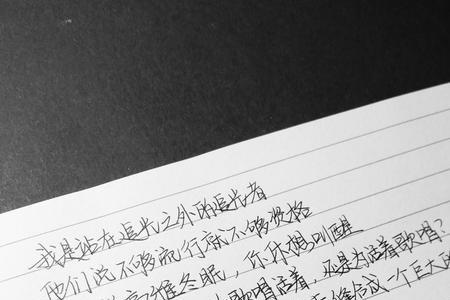 我是站在追光之外的追光者
他们说不够流行就不够资格
高维冬眠，你休想叫醒
歌唱活着，还是为活着歌唱？
成一个巨大